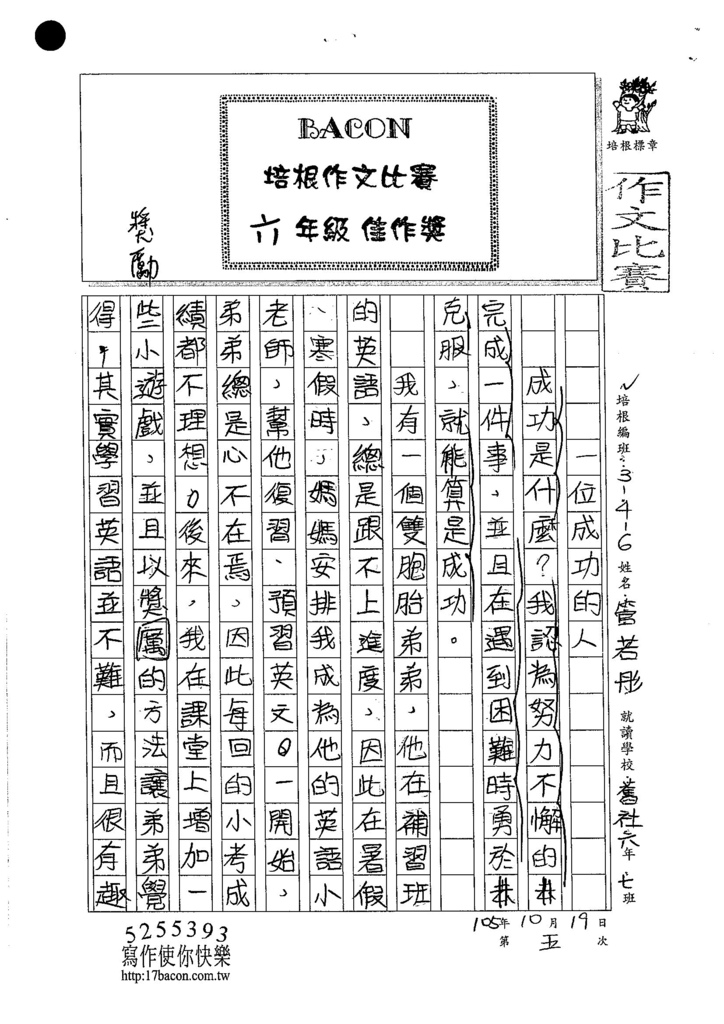 BACON
培根作文比賽
六年級 佳作獎
獎勵
培根標章
作文比賽
培根編班:3-4-6 姓名:若彤 就讀學校:舊社六年七班
一位成功的人
成功是什麼?我認為努力不懈的
完成一件事,並且在遇到困難時勇於
克服,就能算是成功。
我有一個雙胞胎弟弟,他在補習班
的英語,總是跟不上進度,因此在暑假
、寒假時,媽媽安排我成為他的英語小
老師,幫他復習、預習英文。一開始,
弟弟總是心不在焉,因此每回的小考成
績都不理想。後來,我在課堂上增加一
些小遊戲,並且以獎厲的方法讓弟弟覺
得,其實學習英語並不難,而且很有趣
105年10月19日
第五次
5255393
寫作使你快樂
http:17bacon.com.tw